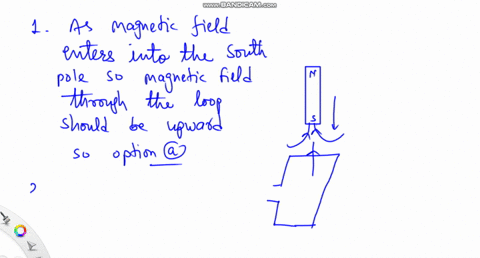 WWW.BANDICAM.COM
1. As magnetic field
enters into the south
pole so magnetic field
through the loop
should be upward
so option ⓐ
N
S
2